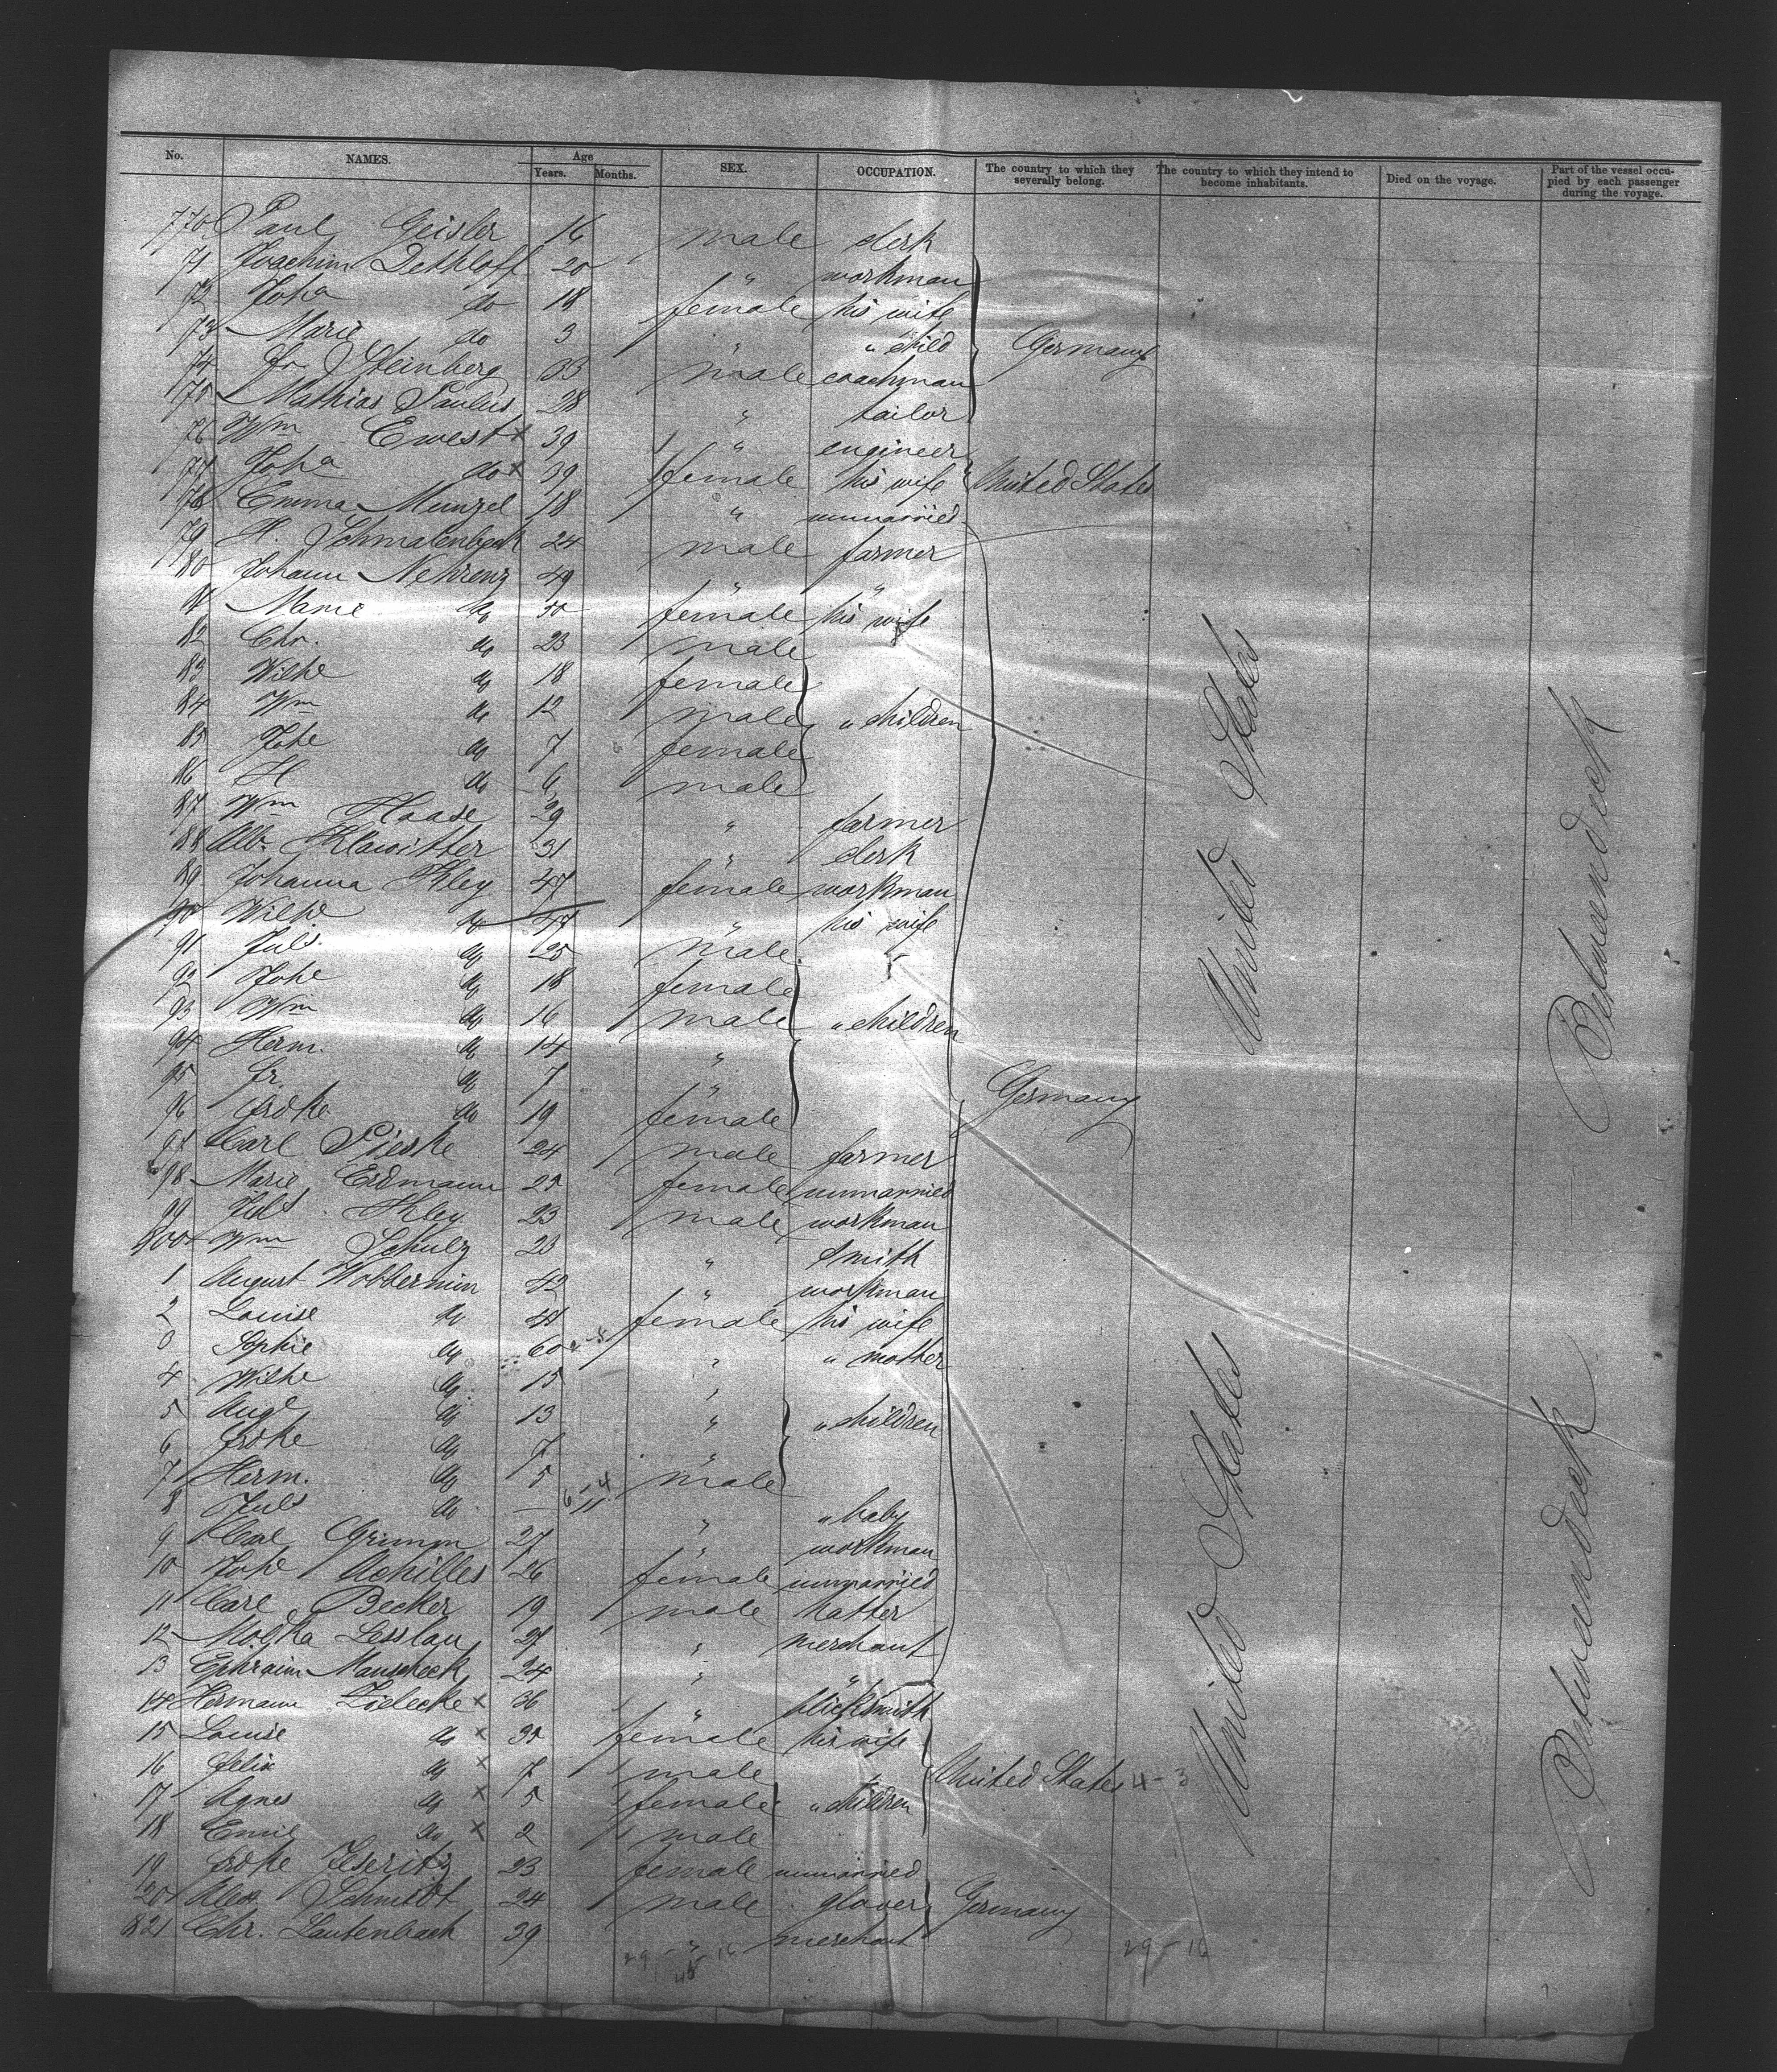 No. NAMES. Age Years. Months. SEX. OCCUPATION. The country to which they severally belong. The country to which they intend to become inhabitants. Died on the voyage. Part of the vessel occupied by each passenger during the voyage.
770 Paul Geisler 16 male clerk
71 Joachim Dethloff 20 " workman
72 Joha do 18 female his wife
73 Marie do 3 " " child Germany
74 Fr. Steinberg 33 male coachman
775 Mathias Paulus 28 " tailor
76 Wm Ewest x 39 " engineer
77 Joha do x 39 female his wife United States
78 Emma Munzel 18 " unmarried
79 H. Schmalenbeck 24 male farmer
80 Johann Nehrenz 49 " "
81 Marie do 50 female his wife
82 Chr. do 23 male
83 Wilhe do 18 female
84 Wm do 12 male " children
85 Johe do 7 female
86 H do 6 male
87 Wm Haase 29 " farmer
88 Alb. Klawitter 31 " clerk
89 Johanna Kley 47 female workman
90 Wilhe do 47 " his wife
91 Juls. do 25 male "
92 Johe do 18 female
93 Wm do 16 male " children
94 Herm. do 14 "
95 Fr. do 7 " Germany
96 Frdke do 19 female
97 Carl Pieske 24 male farmer
98 Marie Erdmann 25 female unmarried
99 Juls. Kley 23 male workman
800 Wm Schulz 23 " smith
1 August Wobbermin 42 " workman
2 Louise do 41 female his wife
3 Sophie do 60 " " mother
4 Wilhe do 15 "
5 Auge do 13 " " children
6 Frdke do 7 "
7 Herm. do 5 male
8 Juls do — 11 " " baby
9 Carl Grimm 27 " workman
10 Johe Achilles 26 female unmarried
11 Carl Becker 19 male hatter
12 Lesslau 27 " merchant
13 Ephraim Mauscheck 24 " "
14 Hermann Zielecke x 36 "
15 Louise do x 35 female his wife
16 Felix do x 7 male United States 4-3
17 Agnes do x 5 female " children
18 Emil do x 2 male
19 Frdke Jseritz 23 female unmarried
20 Alex. Schmidt 24 male glover Germany
821 Chr. Lautenbach 39 " merchant
29-16
United States
United States
Betweendeck
Betweendeck